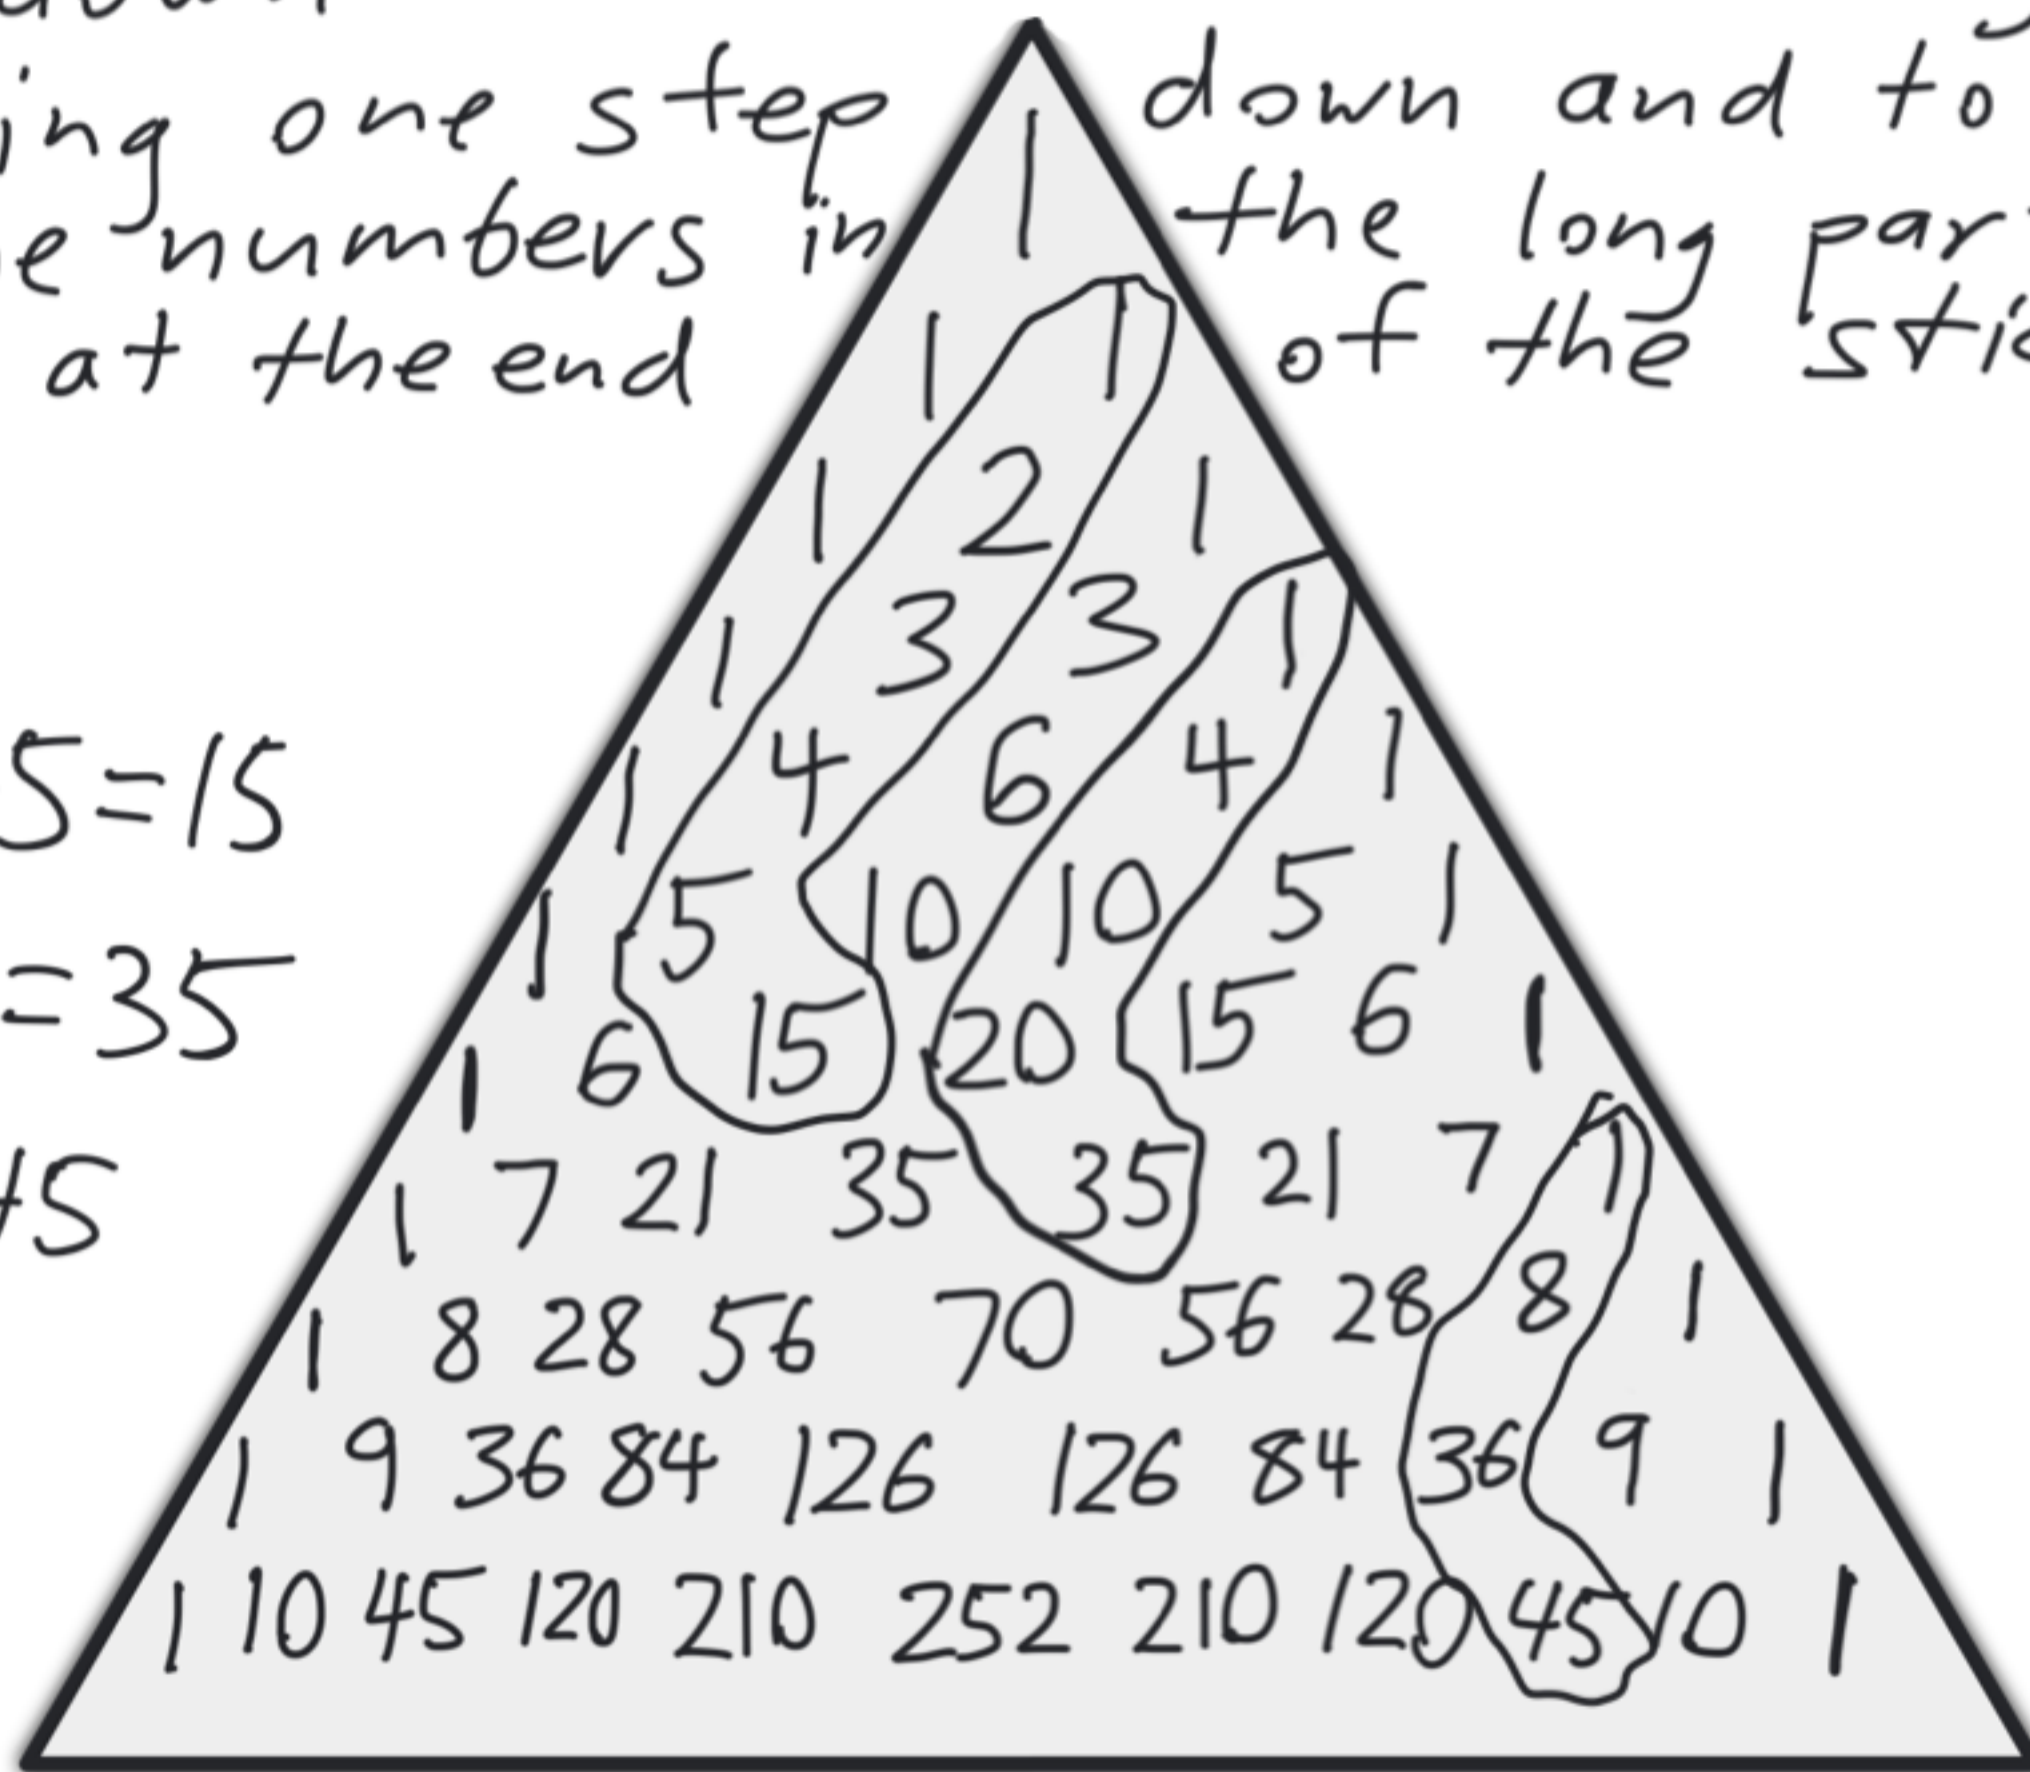 ing one step down and to
e numbers in the long par
at the end of the stic
5=15
=35
45
1
1 1
1 2 1
1 3 3 1
1 4 6 4 1
1 5 10 10 5 1
1 6 15 20 15 6 1
1 7 21 35 35 21 7 1
1 8 28 56 70 56 28 8 1
1 9 36 84 126 126 84 36 9 1
1 10 45 120 210 252 210 120 45 10 1